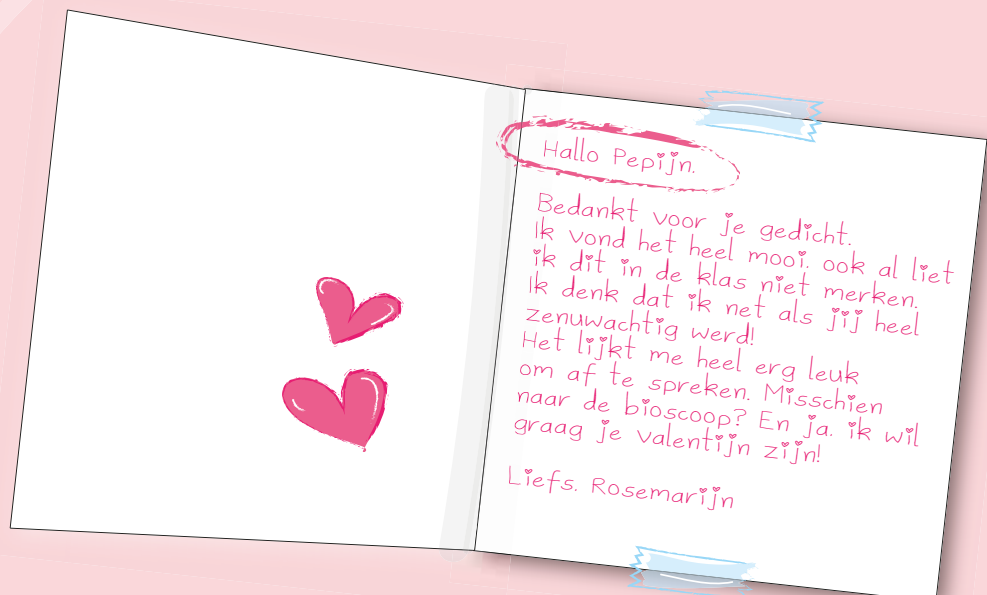 Hallo Pepijn.
Bedankt voor je gedicht.
Ik vond het heel mooi. ook al liet
ik dit in de klas niet merken.
Ik denk dat ik net als jij heel
zenuwachtig werd!
Het lijkt me heel erg leuk
om af te spreken. Misschien
naar de bioscoop? En ja. ik wil
graag je valentijn zijn!
Liefs. Rosemarijn